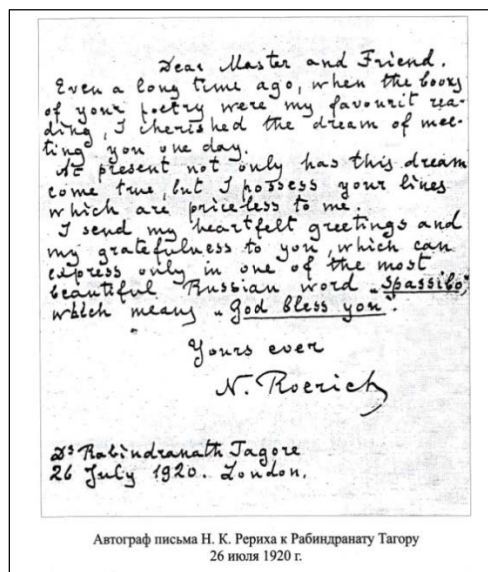 Dear Master and Friend.
Even a long time ago, when the books
of your poetry were my favourit rea-
ding, I cherished the dream of mee-
ting you one day.
At present not only has this dream
come true, but I possess your lines
which are price-less to me.
I send my heartfelt greetings and
my gratefulness to you, which can
express only in one of the most
beautiful Russian word „Spassibo",
which means „God bless you".
Yours ever
N. Roerich
Dr Rabindranath Tagore
26 July 1920. London.
Автограф письма Н. К. Рериха к Рабиндранату Тагору
26 июля 1920 г.